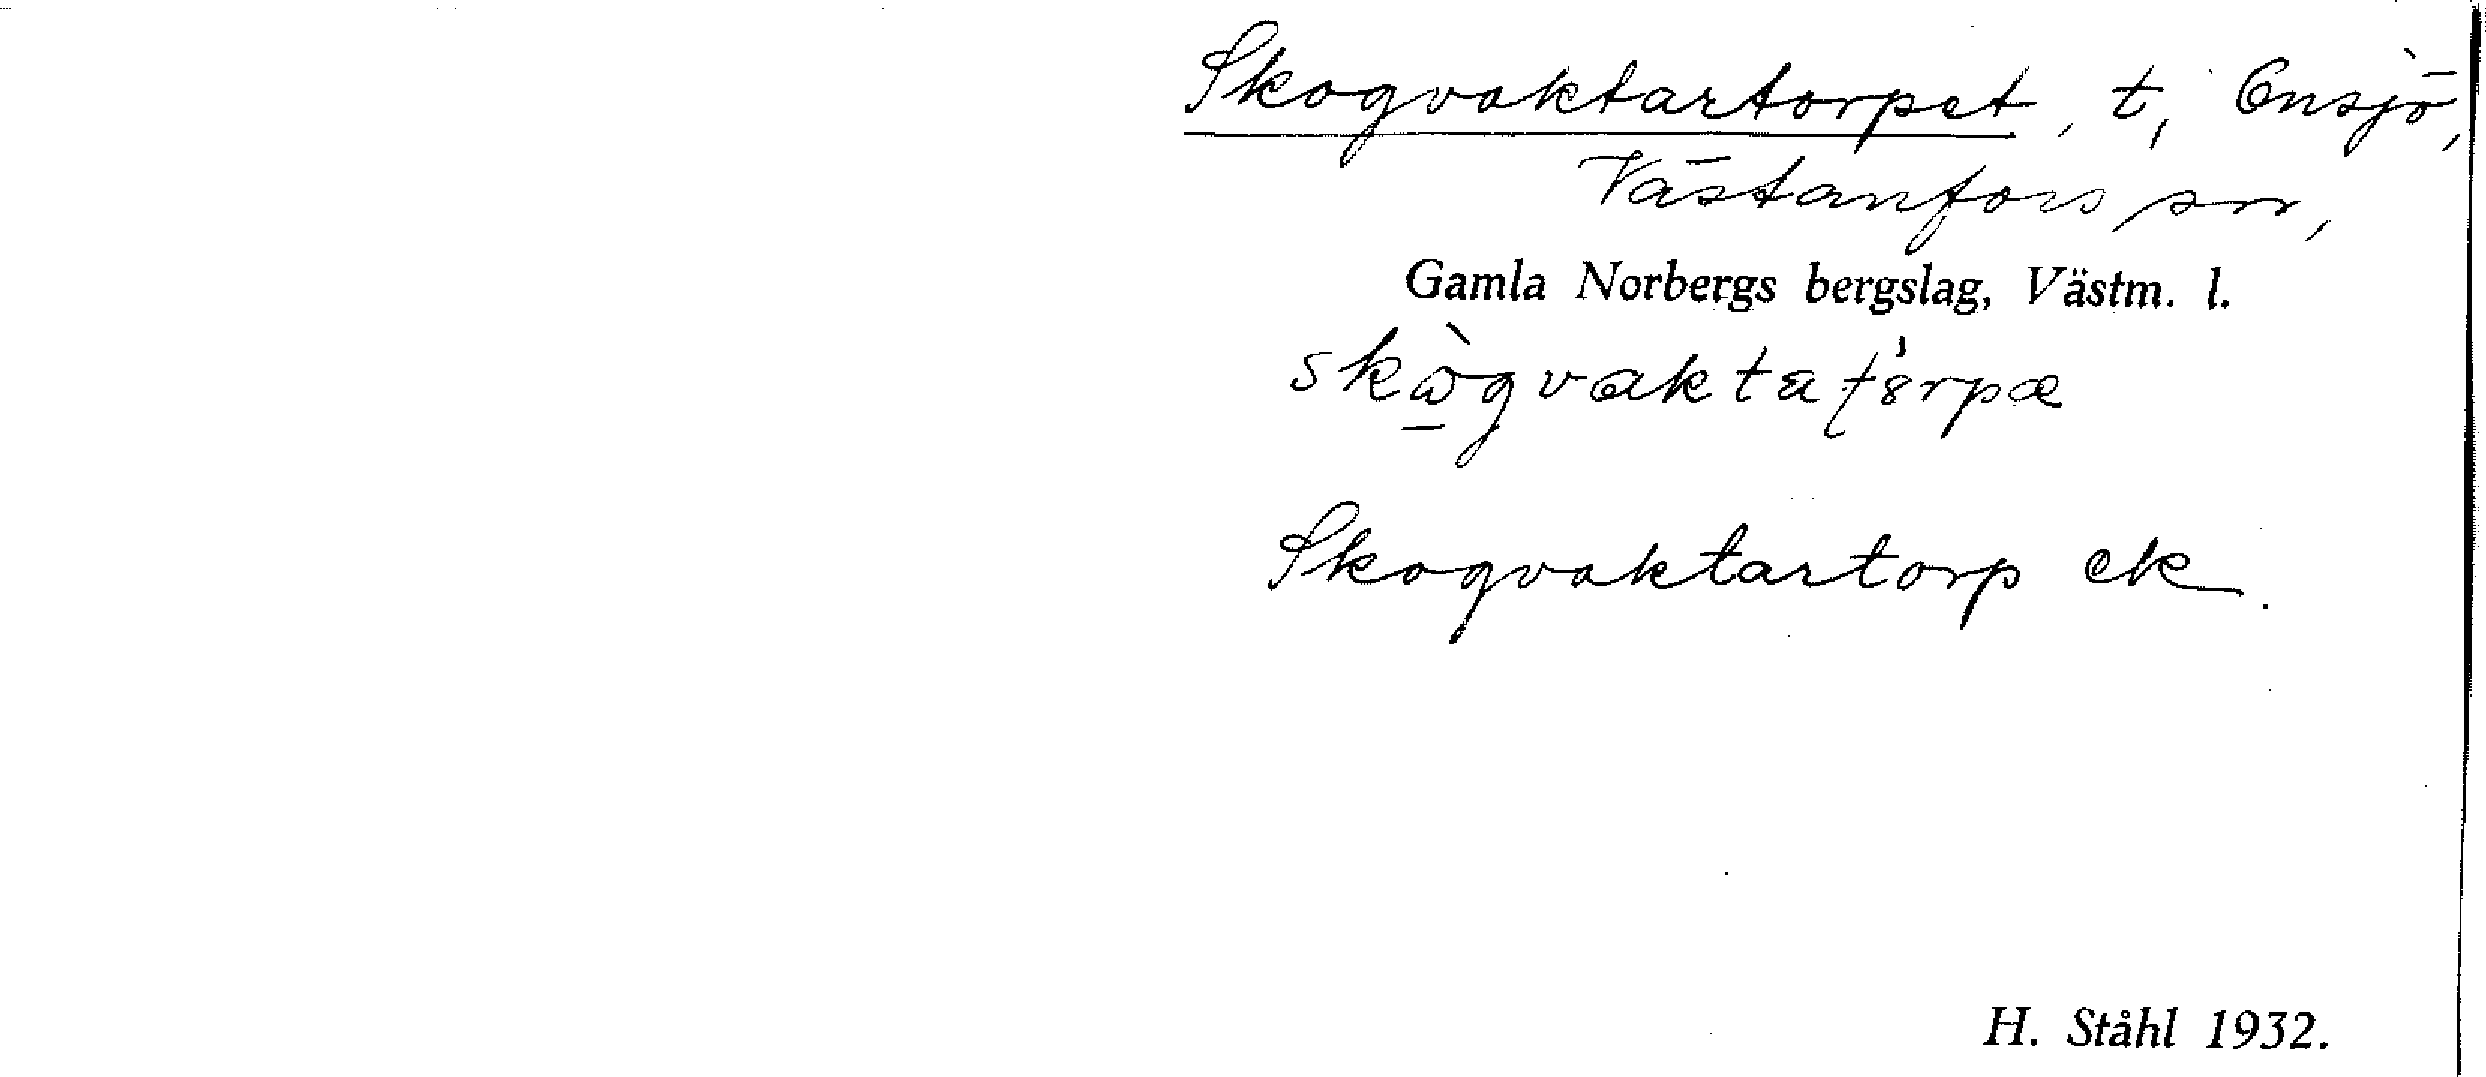 Skogvaktartorpet, t, Ensjö,
Västanfors sn,
Gamla Norbergs bergslag, Västm. l.
Skogvaktartorp ek.
H. Ståhl 1932.